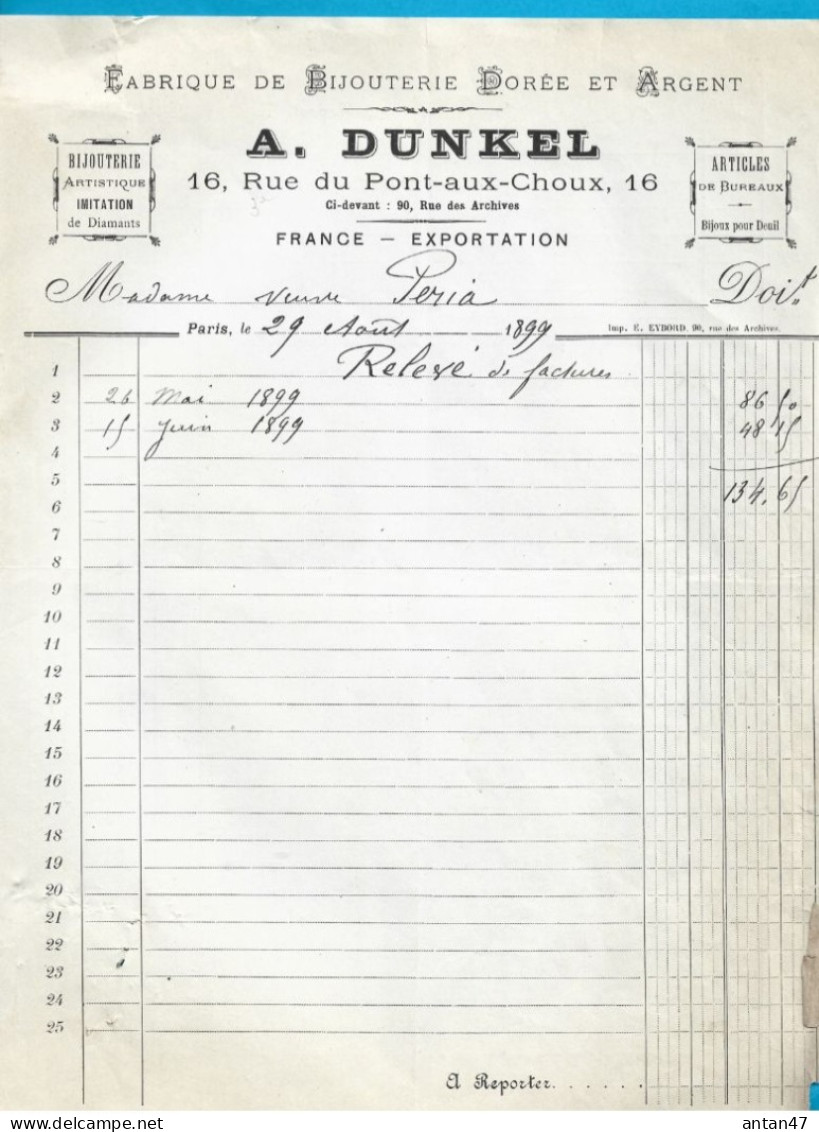 FABRIQUE DE BIJOUTERIE DORÉE ET ARGENT
A. DUNKEL
BIJOUTERIE
ARTISTIQUE
IMITATION
de Diamants
16, Rue du Pont-aux-Choux, 16
Ci-devant : 90, Rue des Archives
FRANCE — EXPORTATION
ARTICLES
DE BUREAUX
Bijoux pour Deuil
Madame veuve Peria Doit
Paris, le 29 Août 1899
Imp. E. EYBORD, 90, rue des Archives.
1 Relevé de factures
2 26 Mai 1899 86 50
3 15 Juin 1899 48 15
4
5 134.65
6
7
8
9
10
11
12
13
14
15
16
17
18
19
20
21
22
23
24
25
A Reporter......
antan47